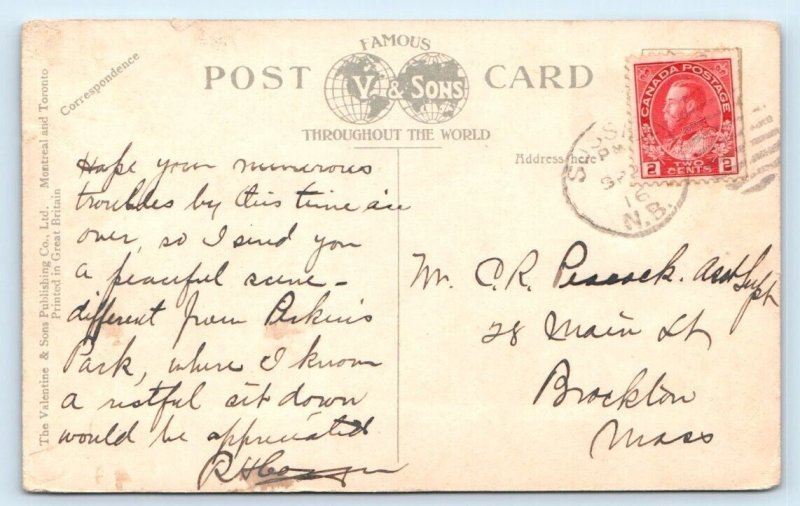 FAMOUS
POST CARD
V. & SONS
THROUGHOUT THE WORLD
Correspondence
Address here
The Valentine & Sons Publishing Co., Ltd. Montreal and Toronto
Printed in Great Britain
CANADA POSTAGE
2 TWO CENTS 2
SUSS
PM
16
N.B.
Hope your numerous
troubles by this time are
over, so I send you
a peaceful scene -
different from Perkins
Park, where I know
a restful sit down
would be appreciated
R H
Mr. C. R. Peacock. Asst Supt
28 Main St
Brockton
Mass